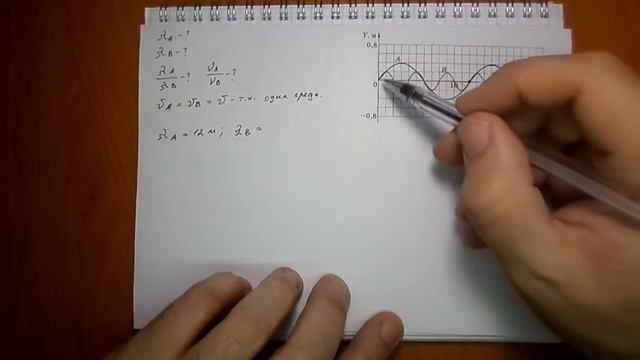 λ_A - ?
λ_B - ?
λ_A/λ_B - ? ν_A/ν_B - ?
υ_A = υ_B = υ - т.к. одна среда.
λ_A = 12 м; λ_B =
Y, м
0,8
A
B
10
0
−0,8